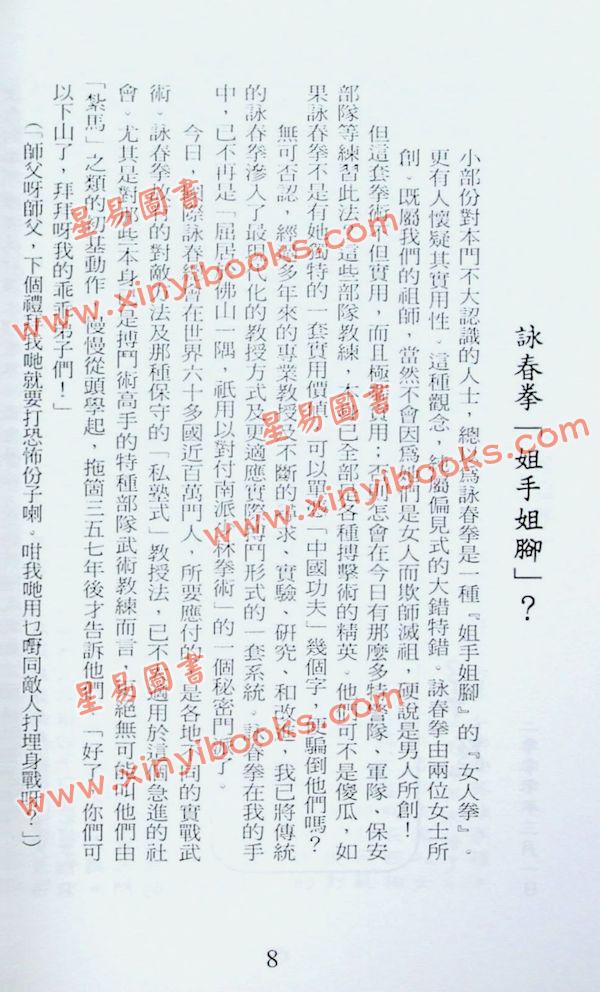 詠春拳「姐手姐腳」?
小部份對本門不大認識的人士,總以為詠春拳是一種『姐手姐腳』的『女人拳』。
更有人懷疑其實用性。這種觀念,純屬偏見式的大錯特錯。詠春拳由兩位女士所
創。既屬我們的祖師,當然不會因為她們是女人而欺師滅祖,硬說是男人所創!
但這套拳術不但實用,而且極為實用;否則怎會在今日有那麼多特警隊、軍隊、保安
部隊等練習此法?這些部隊教練,本身已全部是各種搏擊術的精英。他們可不是傻瓜,如
果詠春拳不是有她獨特的一套實用價值,可以單憑「中國功夫」幾個字,便騙倒他們嗎?
無可否認,經過多年來的專業教授及不斷的尋求、實驗、研究、和改進,我已將傳統
的詠春拳滲入了最現代化的教授方式及更適應實際搏鬥形式的一套系統。詠春拳在我的手
中,已不再是「屈居於佛山一隅,祇用以對付南派少林拳術」的一個秘密門派了。
今日,國際詠春總會在世界六十多國近百萬門人,所要應付的,是各地不同的實戰武
術。詠春拳的對敵方法及那種保守的「私塾式」教授法,已不適用於這個急進的社
會。尤其是對那些本身已是搏鬥術高手的特種部隊武術教練而言,絕無可能叫他們由
「紮馬」之類的初基動作,慢慢從頭學起,拖箇三五七年後才告訴他們:「好了,你們可
以下山了,拜拜呀我的乖乖弟子們!」
(「師父呀師父,下個禮拜我哋就要打恐怖份子喇。咁我哋用乜嘢同敵人打埋身戰呀?」)
8
星易圖書
www.xinyibooks.com
星易圖書
www.xinyibooks.com
星易圖書
www.xinyibooks.com